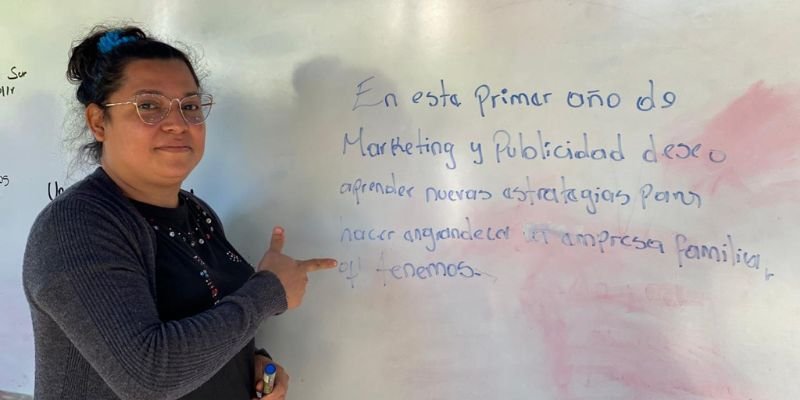 Ser
En esta primer año de
Marketing y Publicidad deseo
aprender nuevas estrategias para
hacer angrandecer empresa familiar,
q' tenemos.